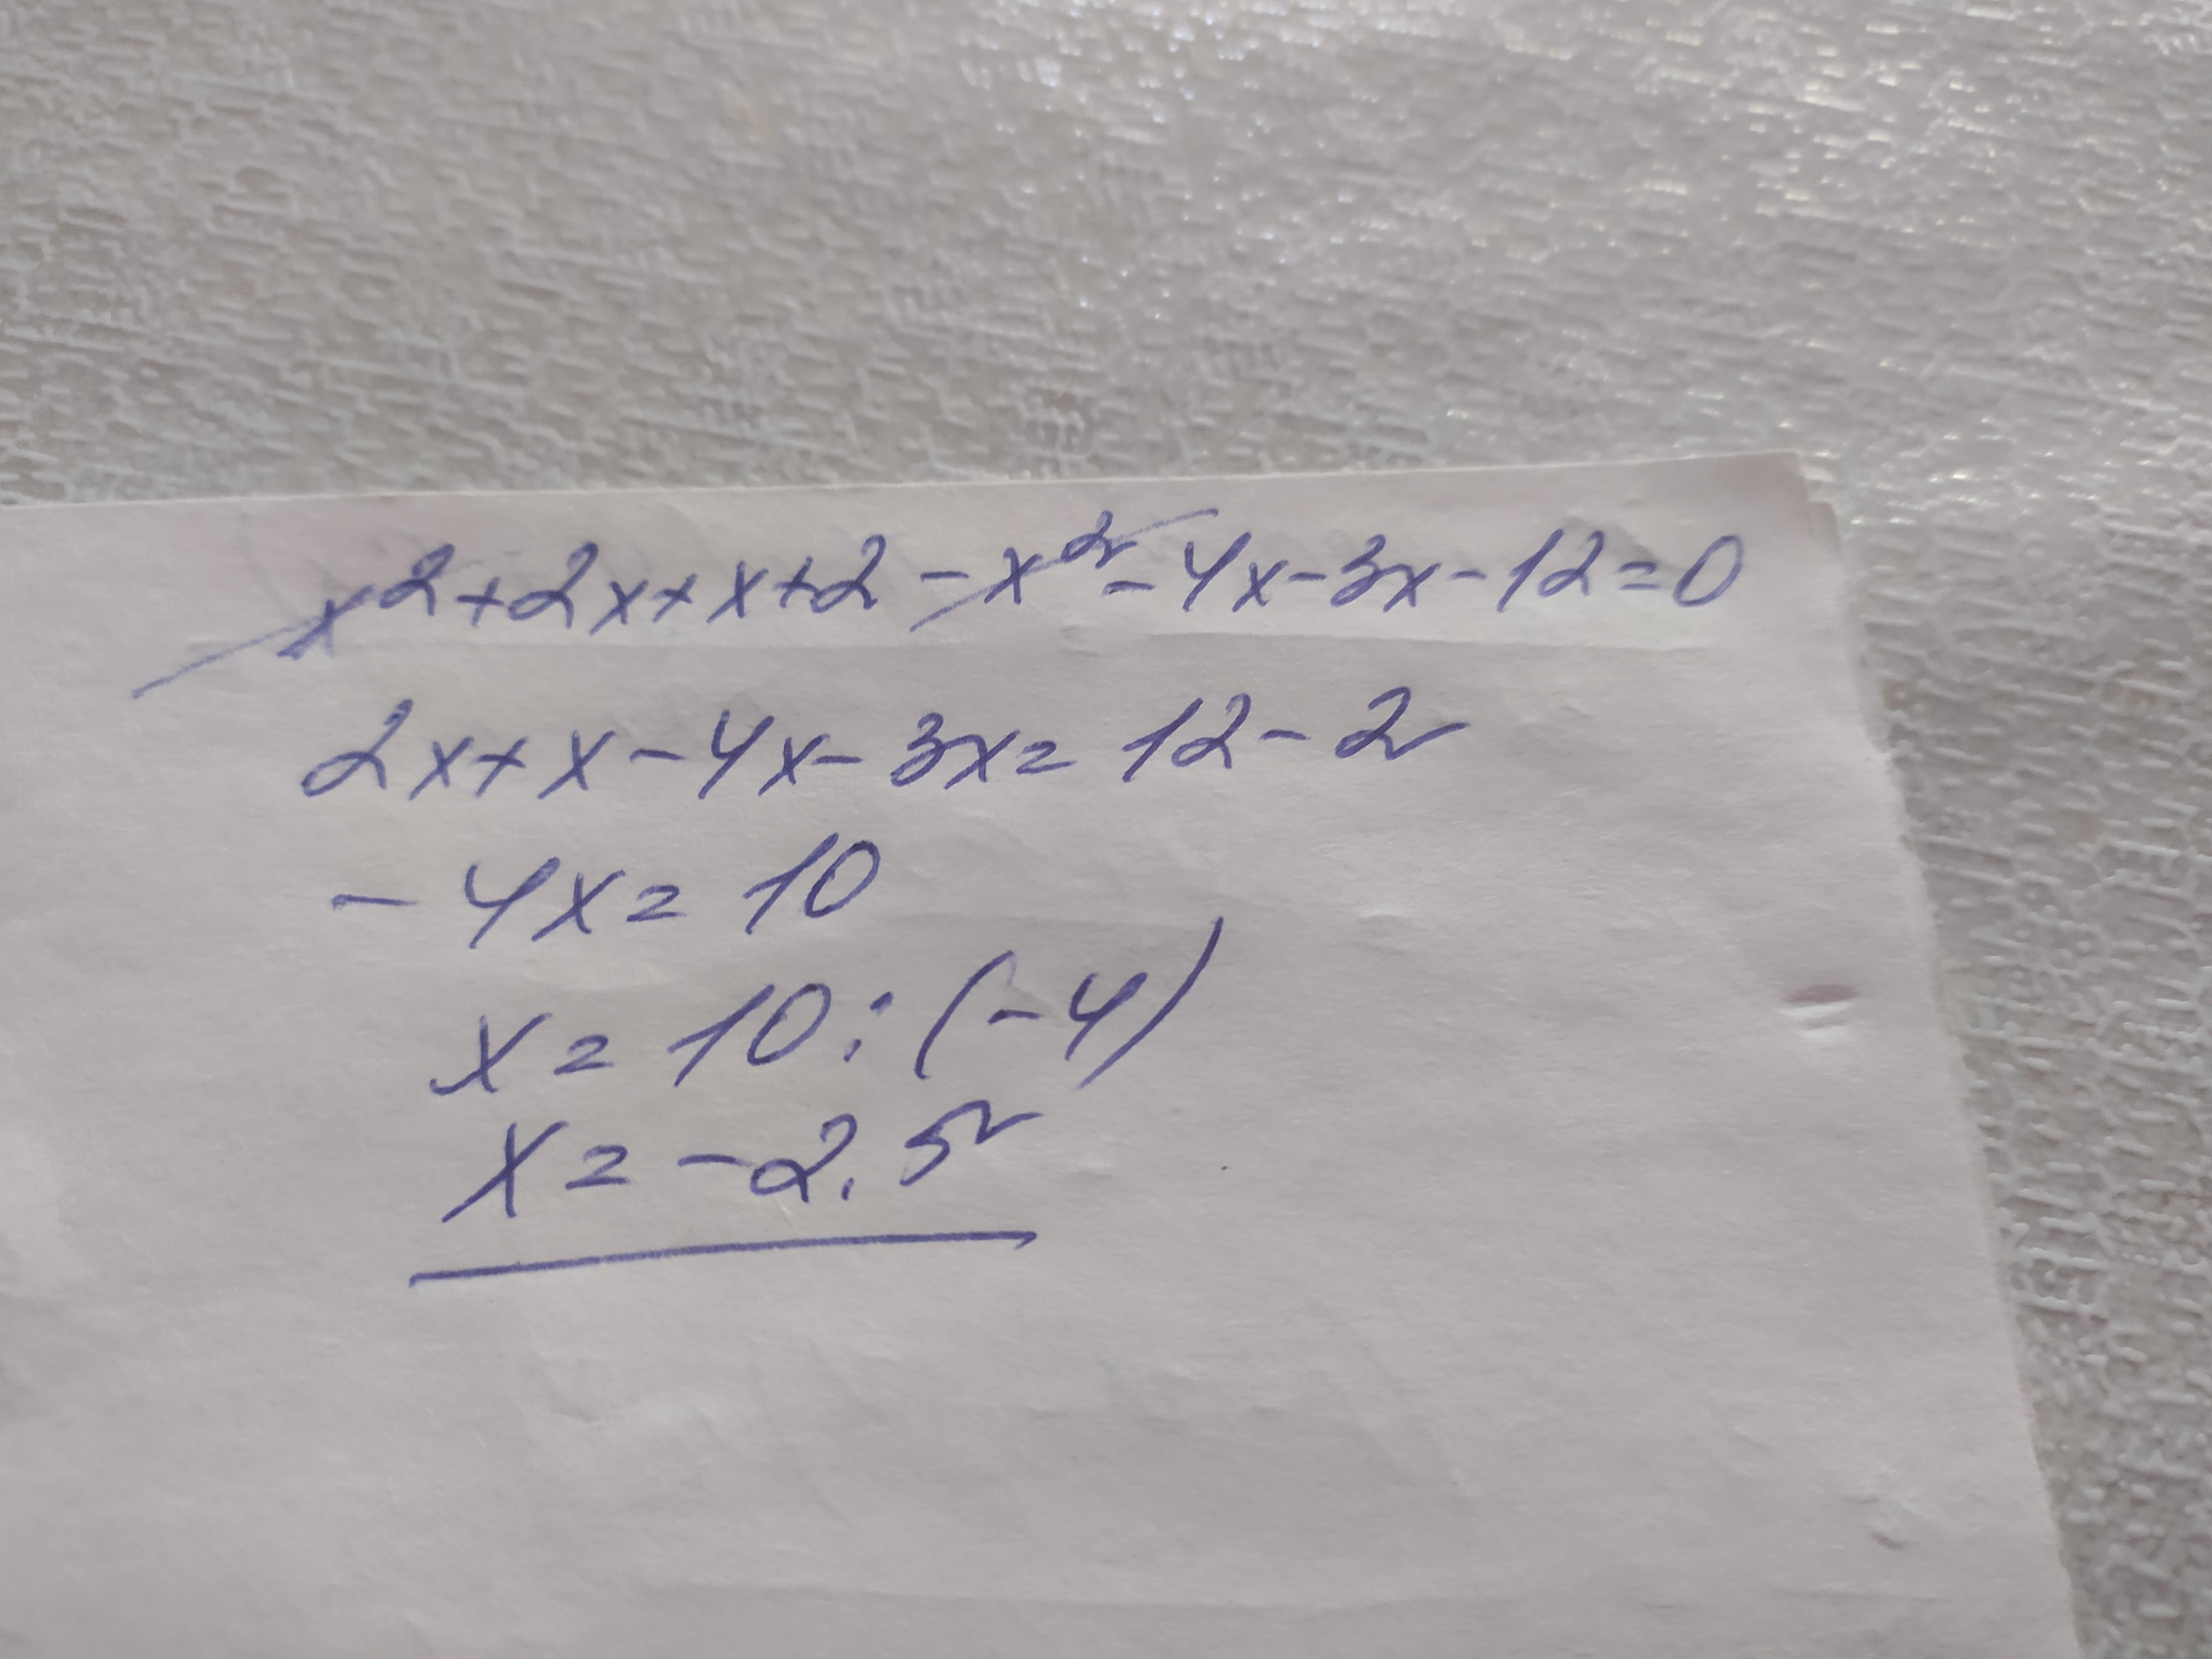 x²+2x+x+2-x²-4x-3x-12=0
2x+x-4x-3x=12-2
-4x=10
x=10:(-4)
x=-2.5